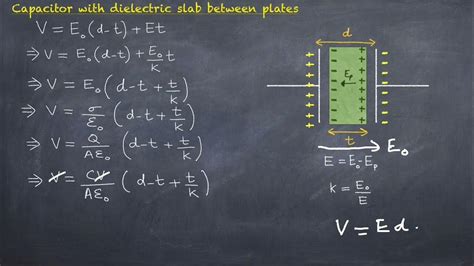 Capacitor with dielectric slab between plates
V = E₀(d-t) + Et
⇒ V = E₀(d-t) + E₀/k t
⇒ V = E₀(d-t + t/k)
⇒ V = σ/ε₀ (d-t + t/k)
⇒ V = Q/Aε₀ (d-t + t/k)
⇒ V = CV/Aε₀ (d-t + t/k)
d
+ - + -
+ - + -
+ - + -
Eₚ
+ - + -
+ - + -
+ - + -
t
E₀
E = E₀-Eₚ
k = E₀/E
V = Ed.